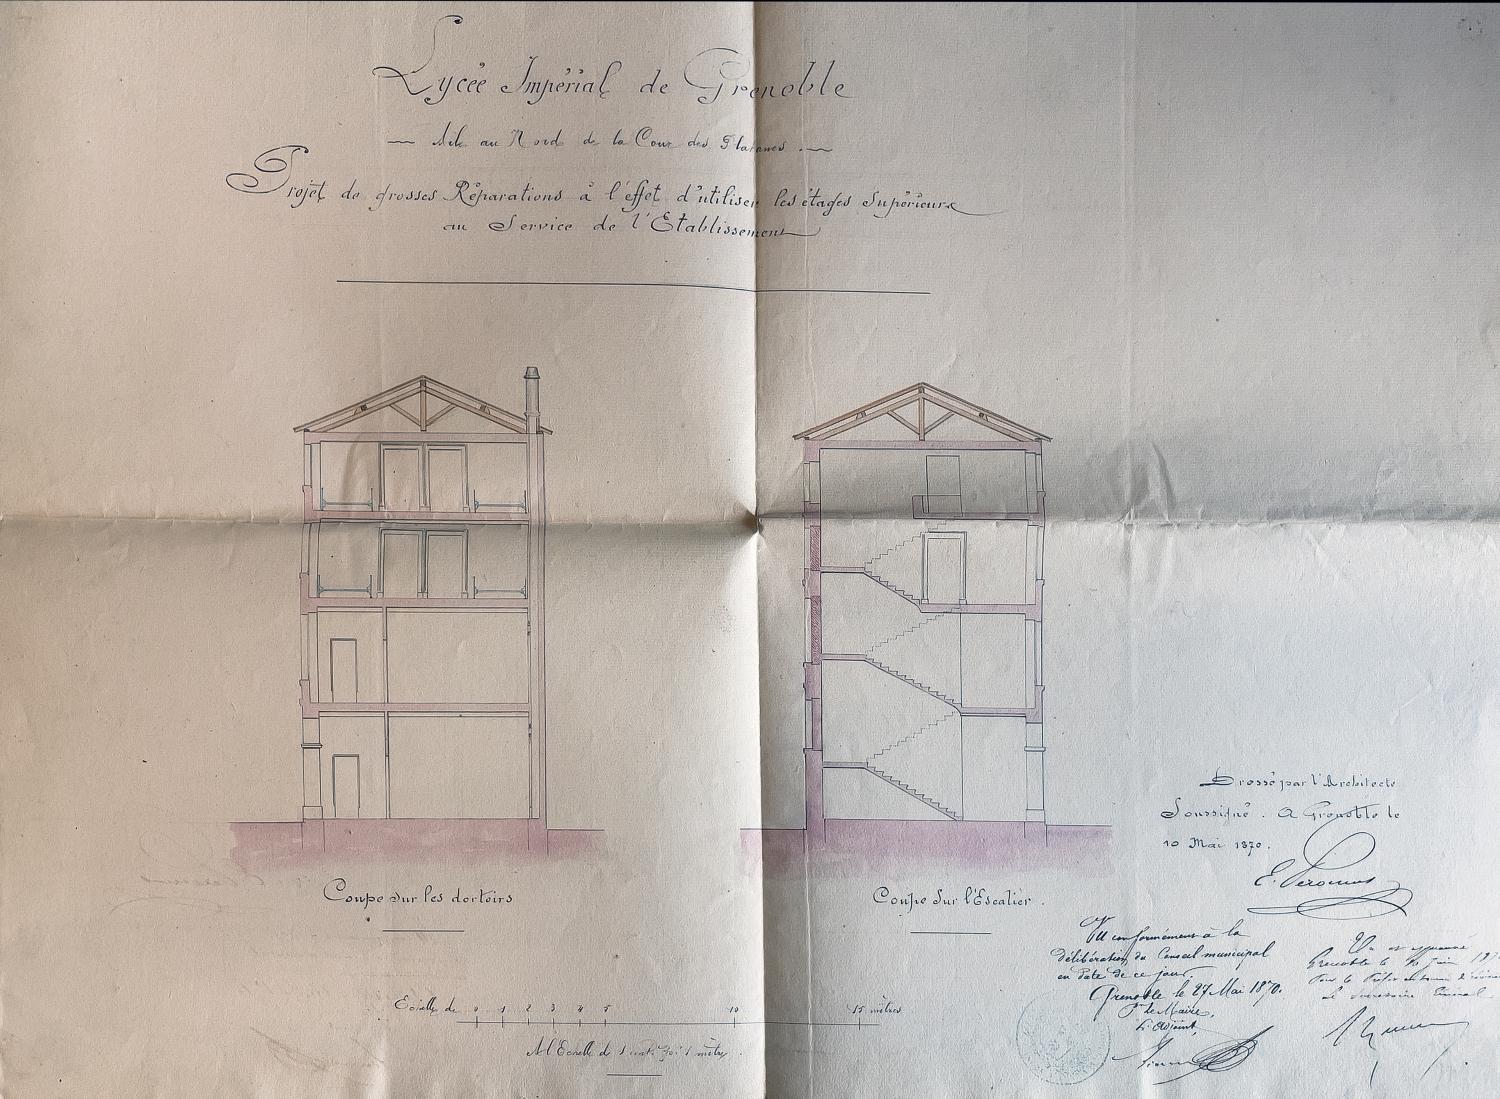 Lycée Impérial de Grenoble
Aile au Nord de la Cour des Platanes
Projet de grosses Réparations à l'effet d'utiliser les étages Supérieurs
au Service de l'Etablissement
Coupe sur les dortoirs
Coupe sur l'Escalier.
Echelle de 0 1 2 3 4 5 10 15 mètres
A l'Echelle de
Dressé par l'Architecte
Soussigné. A Grenoble le
10 Mai 1870.
Vu conformément à la
délibération du Conseil municipal
en date de ce jour.
Grenoble le 27 Mai 1870.
Pr le Maire,
L'adjoint,
Vu et approuvé
Grenoble le Juin
Pour le Préfet
Le Secrétaire Général